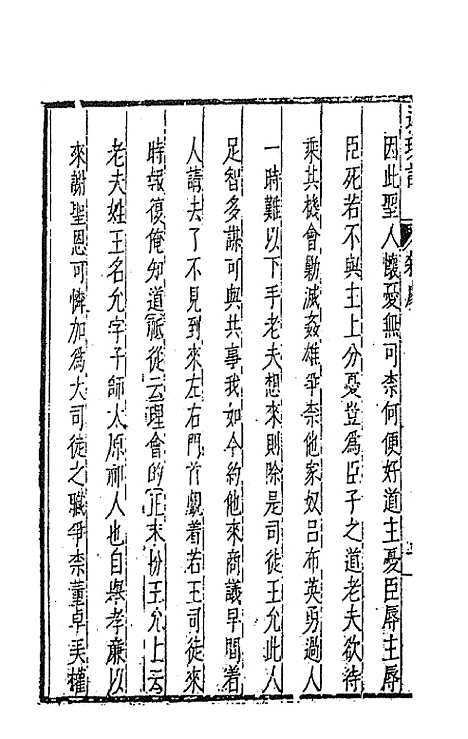 連環計
雜劇
因此聖人懷憂無可柰何便好道主憂臣辱主辱
臣死若不與主上分憂豈爲臣子之道老夫欲待
乘其機會勦滅姦雄爭柰他家奴呂布英勇過人
一時難以下手老夫想來則除是司徒王允此人
足智多謀可與共事我如今約他來商議早間着
人請去了不見到來左右門首覷着若王司徒來
時報復俺知道祗從云理會的正末扮王允上云
老夫姓王名允字子師太原祁人也自舉孝廉以
來謝聖恩可憐加爲大司徒之職爭柰董卓弄權